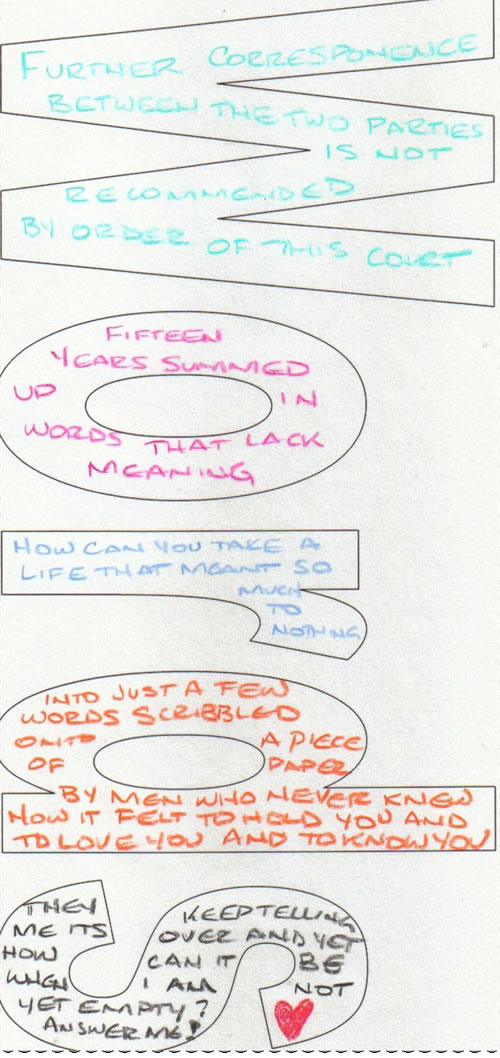 Words
FURTHER CORRESPONENCE
BETWEEN THE TWO PARTIES
IS NOT
RECOMMENDED
BY ORDER OF THIS COURT
FIFTEEN
YEARS SUMMED
UP IN
WORDS THAT LACK
MEANING
HOW CAN YOU TAKE A
LIFE THAT MEANT SO
MUCH
TO
NOTHING
INTO JUST A FEW
WORDS SCRIBBLED
ONTO A PIECE
OF PAPER
BY MEN WHO NEVER KNEW
HOW IT FELT TO HOLD YOU AND
TO LOVE YOU AND TO KNOW YOU
THEY KEEP TELLING
ME ITS OVER AND YET
HOW CAN IT BE
WHEN I AM NOT
YET EMPTY?
ANSWER ME!